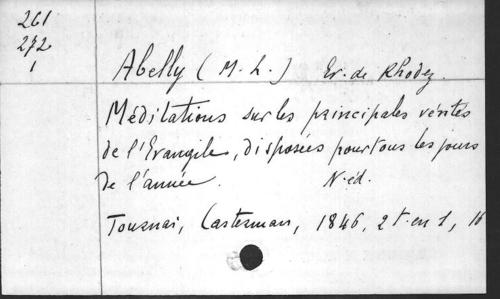 261
272
1
Abelly (M. L.) Ev. de Rhodez.
Méditations sur les principales vérités
de l'Evangile, disposées pour tous les jours
de l'année. N. éd.
Tournai, Casterman, 1846, 2 t. en 1, 16